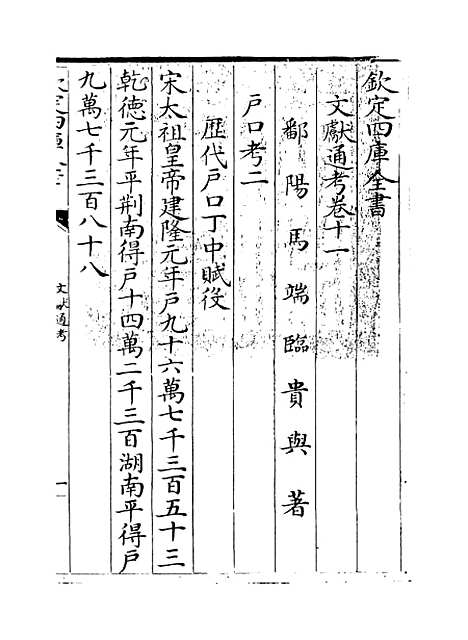 欽定四庫全書
文獻通考卷十一
鄱陽馬端臨貴與著
戶口考二
歷代戶口丁中賦役
宋太祖皇帝建隆元年戶九十六萬七千三百五十三
乾德元年平荆南得戶十四萬二千三百湖南平得戶
九萬七千三百八十八
文獻通考
一